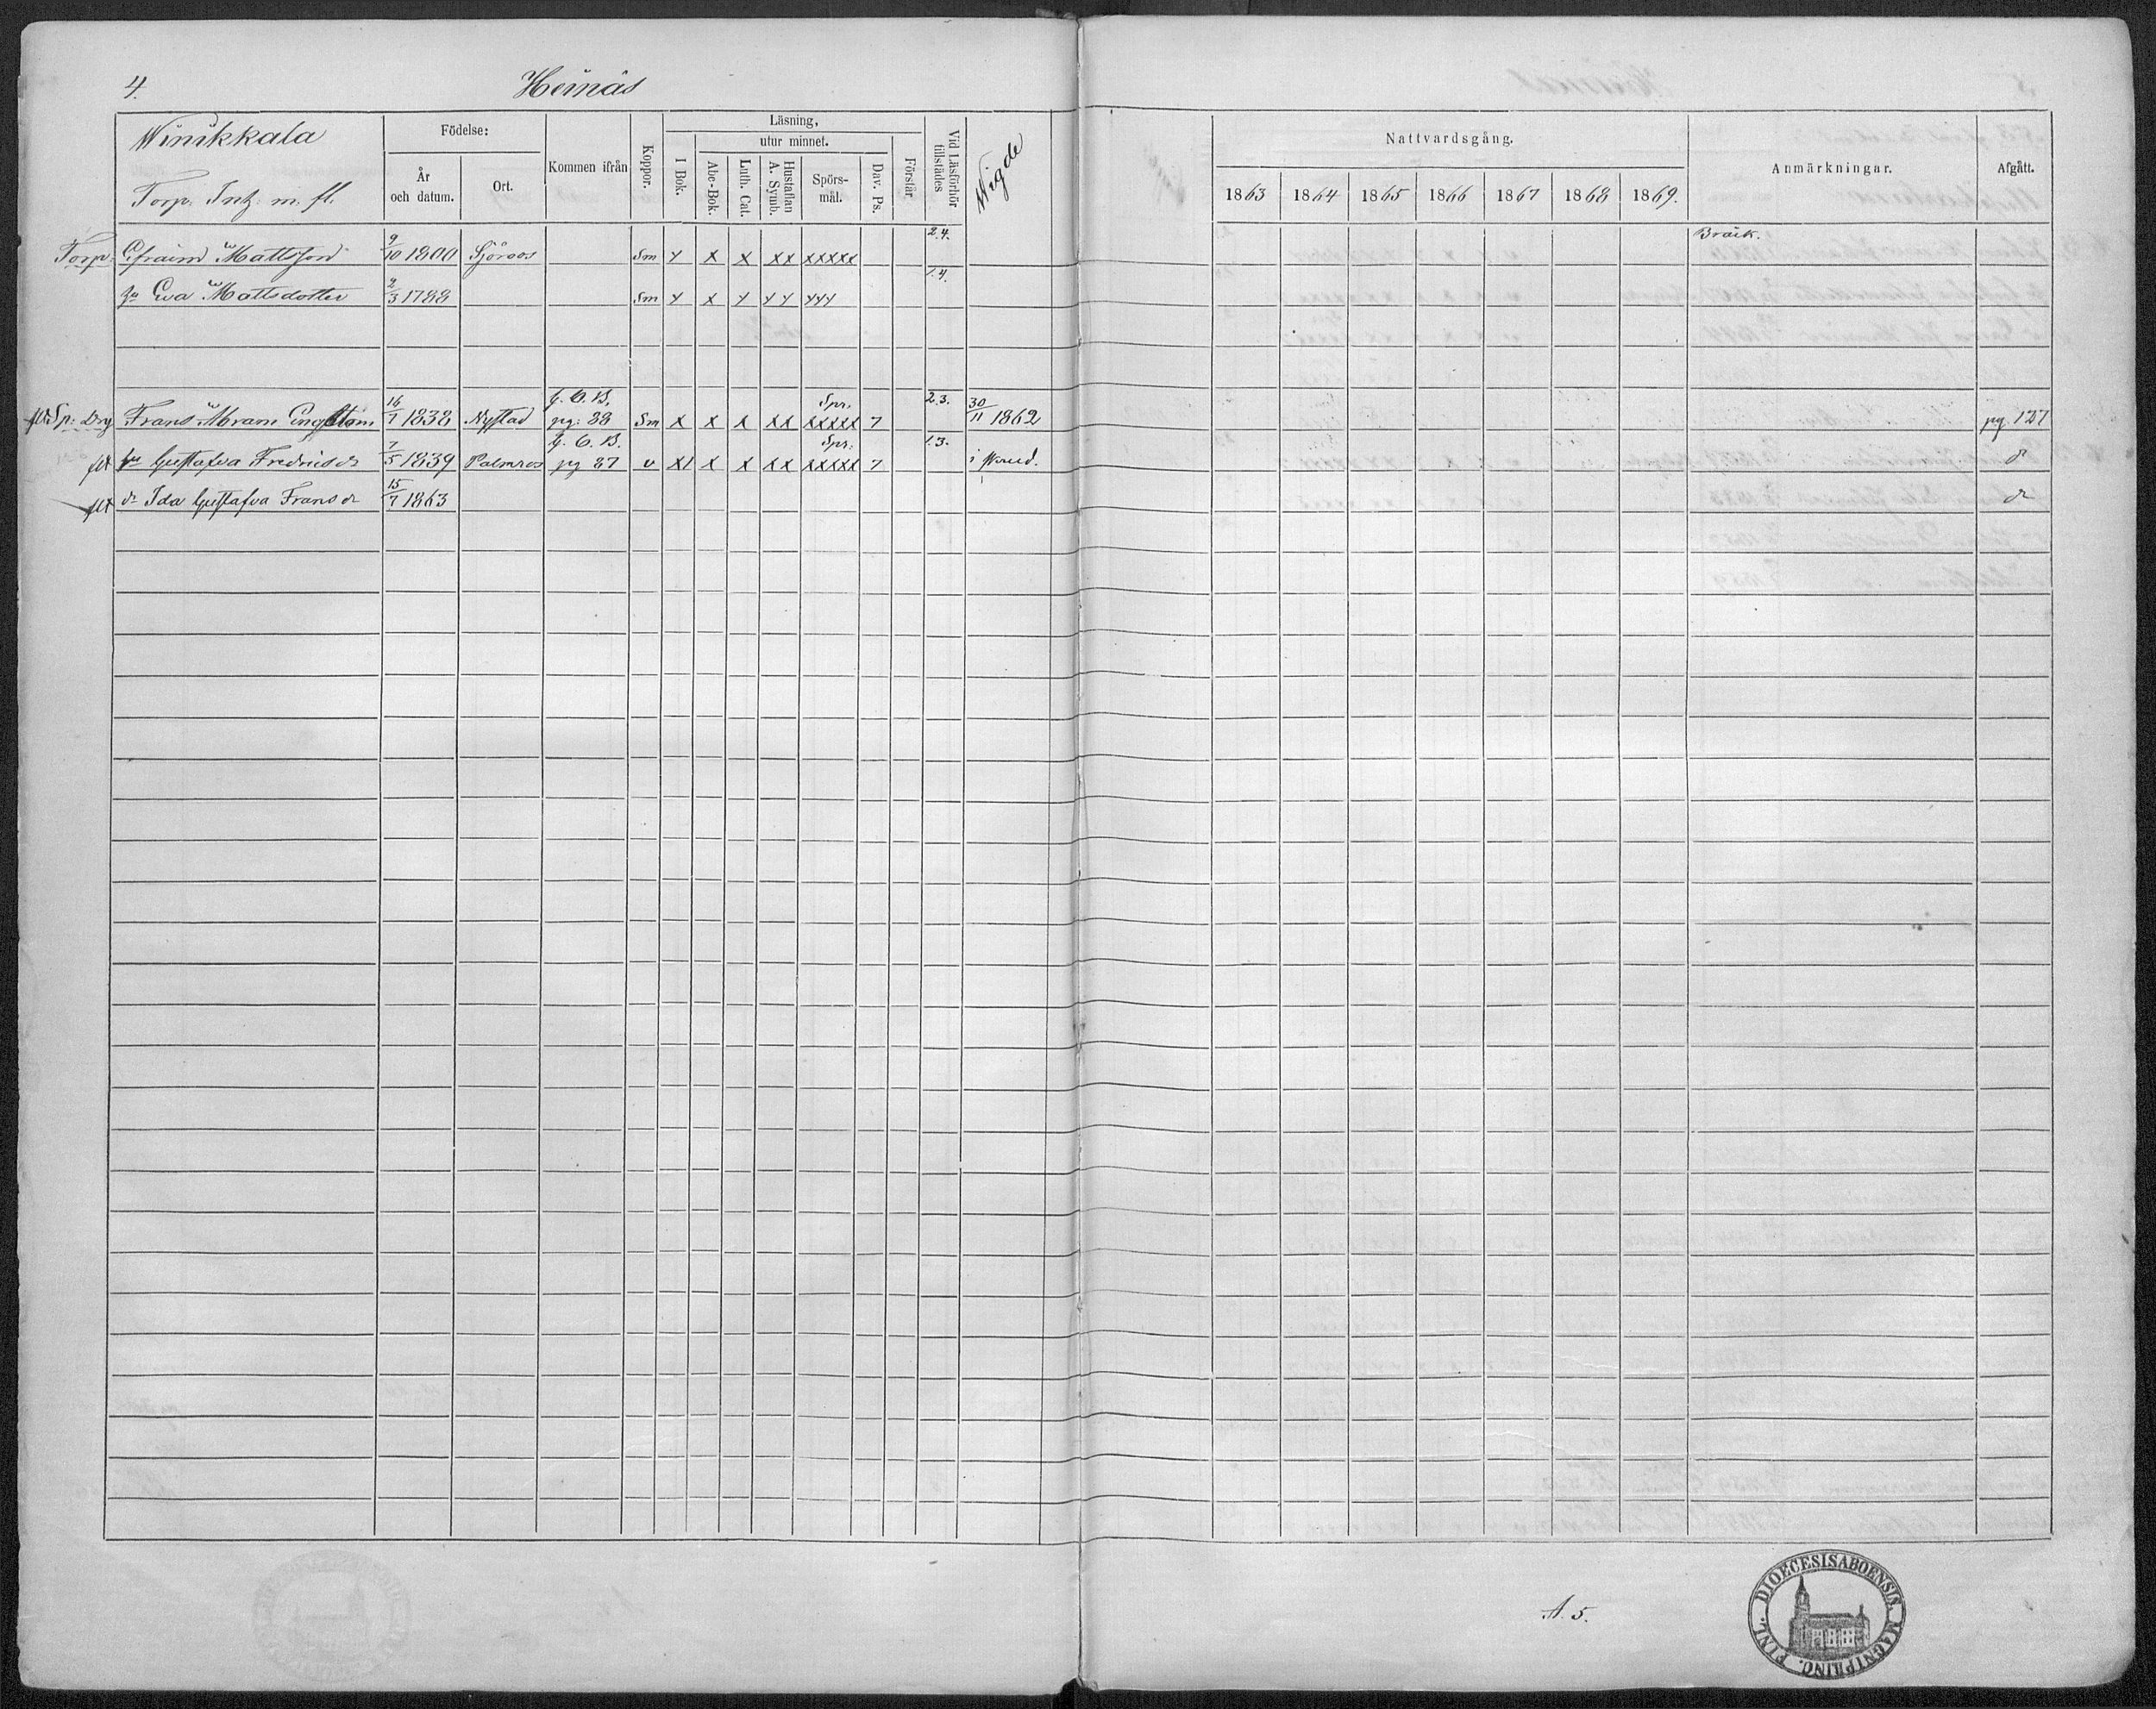 4. Heinäs
Winikkala
Torp. Inh: m. fl.
Födelse:
År och datum.
Ort.
Kommen ifrån
Koppor.
Läsning,
I Bok.
utur minnet.
Abc-Bok.
Luth. Cat.
Hustaflan A. Symb.
Spörs-mål.
Dav. Ps.
Förstår
Vid Läsförhör tillstädes
Wigde
Nattvardsgång.
1863 1864 1865 1866 1867 1868 1869.
Anmärkningar.
Afgått.
Torp. Efraim Mattsson 9/10 1800 Sjöroos Sm x x xx xxxxx 2.4. Bräck.
hu Eva Mattsdotter 2/3 1788 Sm x 1.4.
flt Sp: Drg Frans Abram Engström 16/7 1838 Nystad g. C. B. pg: 38 Sm x x x xx Spr. xxxxx 7 2.3. 30/11 1862 pg. 127
flt hu Gustafva Fredriks dr 7/5 1839 Palmros g. C. B. pg 87 v x x xx Spr. xxxxx 7 1.3.
flt dr Ida Gustafva Frans dr 15/7 1863
A. 5.
DIOECESIS ABOENSIN. MAGNI PRINC. FINL.